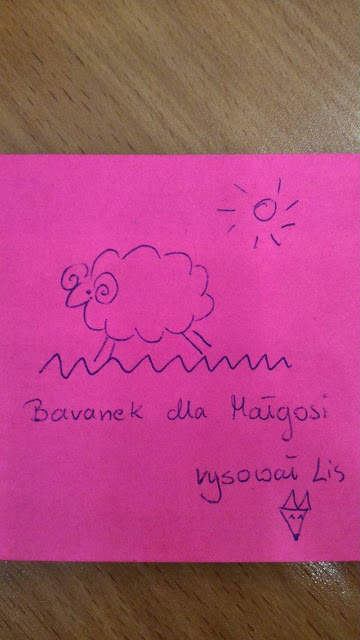 Baranek dla Małgosi
rysował Lis